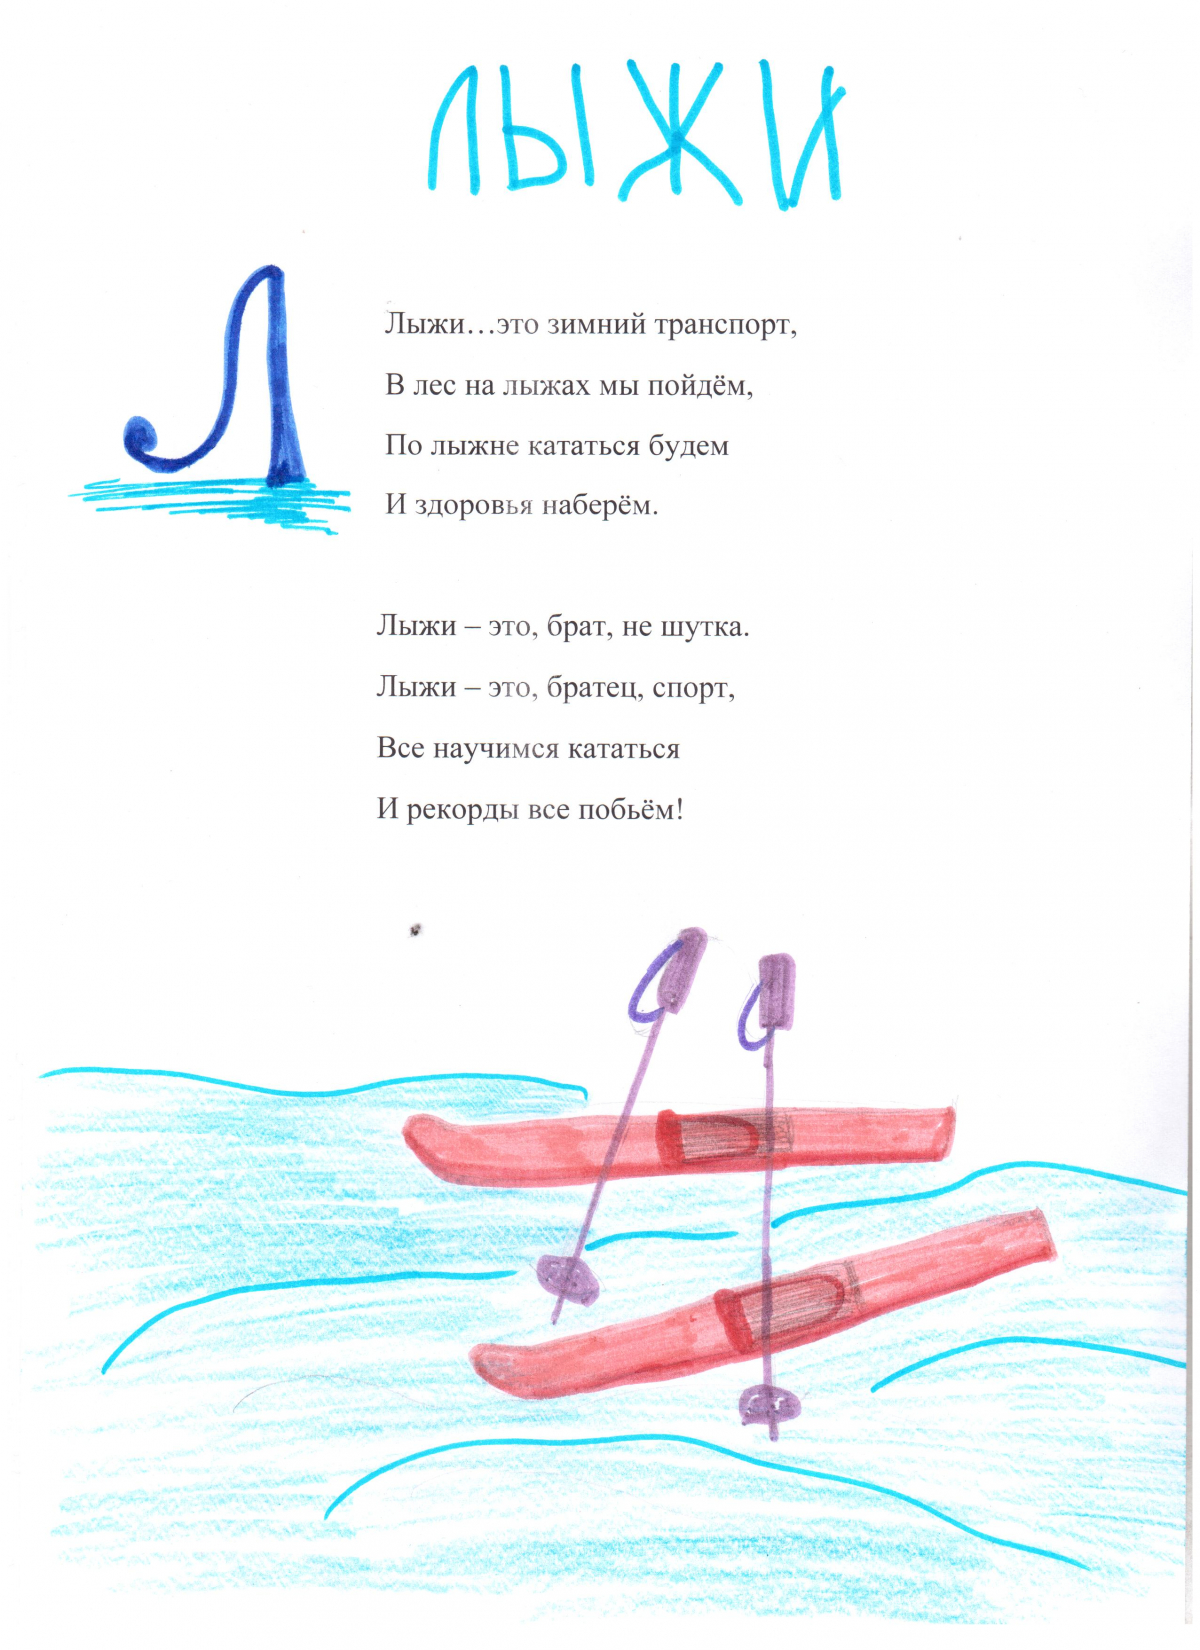 ЛЫЖИ
Л
Лыжи…это зимний транспорт,
В лес на лыжах мы пойдём,
По лыжне кататься будем
И здоровья наберём.
Лыжи – это, брат, не шутка.
Лыжи – это, братец, спорт,
Все научимся кататься
И рекорды все побьём!